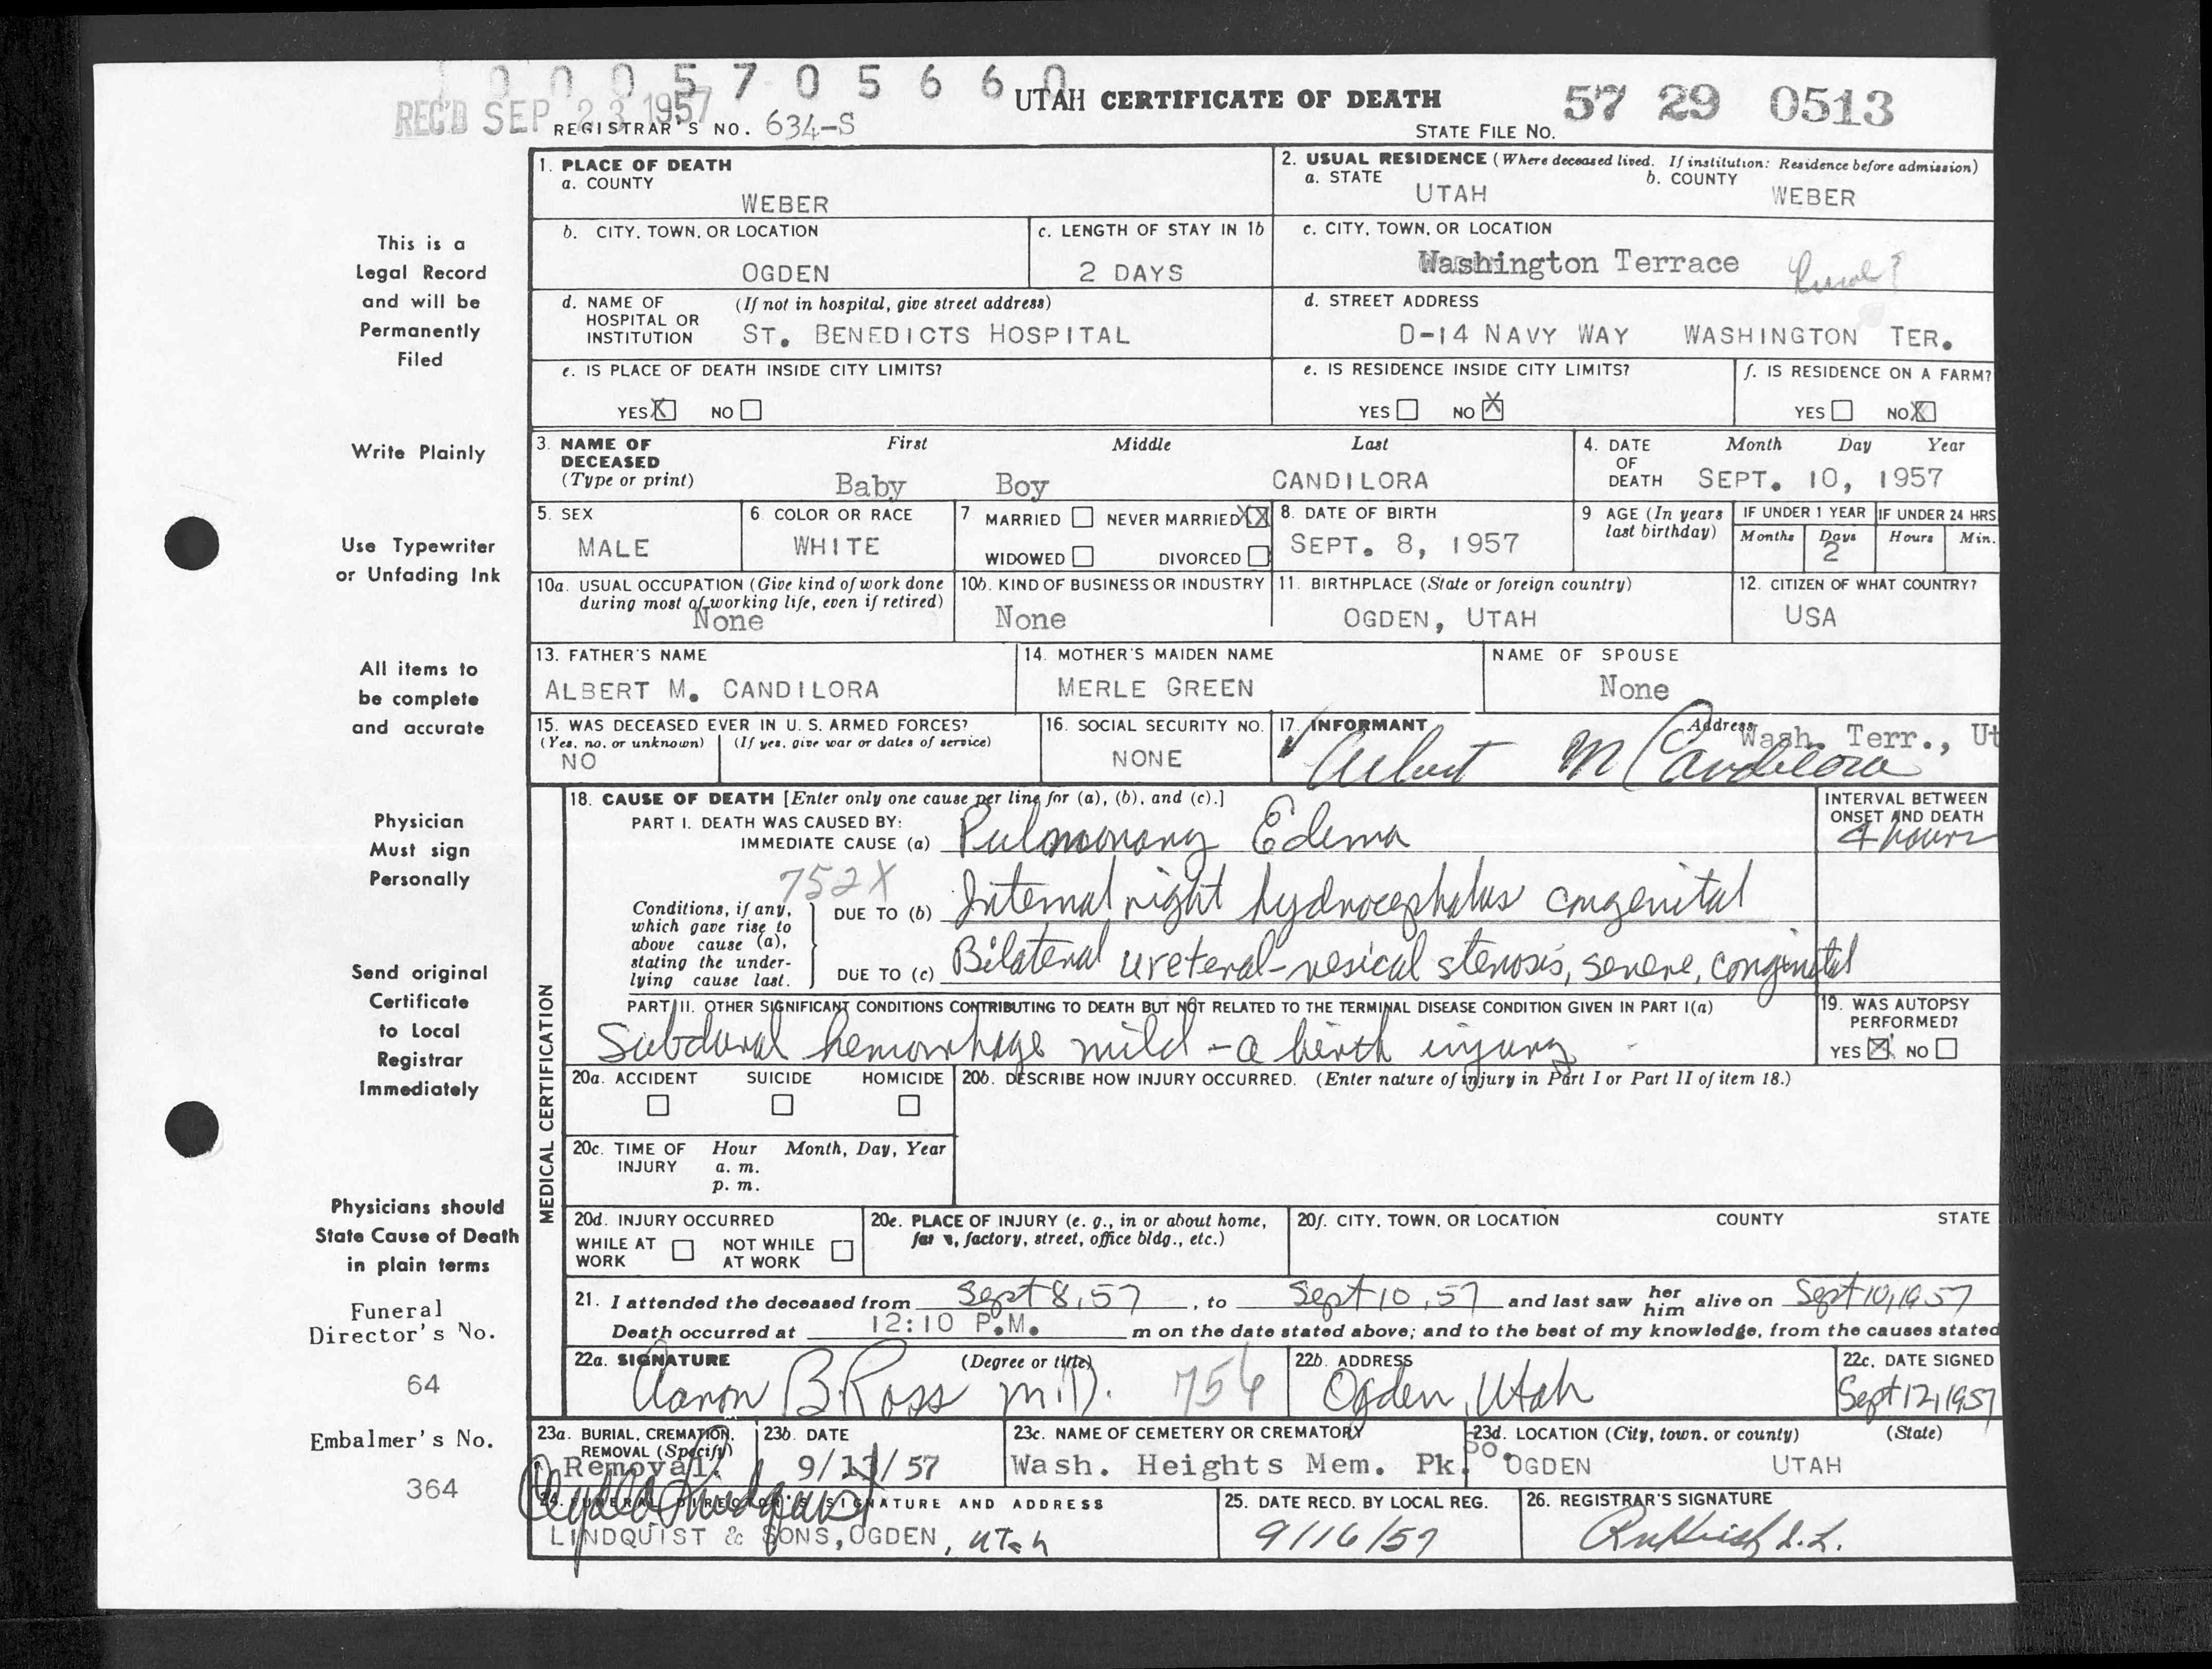 1 0 0 0 5 7 0 5 6 6 0
REC'D SEP 23 1957
REGISTRAR'S NO. 634-S
UTAH CERTIFICATE OF DEATH
STATE FILE NO. 57 29 0513
This is a
Legal Record
and will be
Permanently
Filed
Write Plainly
Use Typewriter
or Unfading Ink
All items to
be complete
and accurate
Physician
Must sign
Personally
Send original
Certificate
to Local
Registrar
Immediately
Physicians should
State Cause of Death
in plain terms
Funeral
Director's No.
64
Embalmer's No.
364
1. PLACE OF DEATH
a. COUNTY
WEBER
2. USUAL RESIDENCE (Where deceased lived. If institution: Residence before admission)
a. STATE UTAH b. COUNTY WEBER
b. CITY, TOWN, OR LOCATION
OGDEN
c. LENGTH OF STAY IN 1b
2 DAYS
c. CITY, TOWN, OR LOCATION
Washington Terrace Rural?
d. NAME OF HOSPITAL OR INSTITUTION (If not in hospital, give street address)
ST. BENEDICTS HOSPITAL
d. STREET ADDRESS
D-14 NAVY WAY WASHINGTON TER.
e. IS PLACE OF DEATH INSIDE CITY LIMITS?
YES X NO
e. IS RESIDENCE INSIDE CITY LIMITS?
YES NO X
f. IS RESIDENCE ON A FARM?
YES NO X
3. NAME OF DECEASED (Type or print)
First Middle Last
Baby Boy CANDILORA
4. DATE OF DEATH Month Day Year
SEPT. 10, 1957
5. SEX
MALE
6 COLOR OR RACE
WHITE
7 MARRIED NEVER MARRIED XX
WIDOWED DIVORCED
8. DATE OF BIRTH
SEPT. 8, 1957
9 AGE (In years last birthday)
IF UNDER 1 YEAR
Months Days
2
IF UNDER 24 HRS
Hours Min.
10a. USUAL OCCUPATION (Give kind of work done during most of working life, even if retired)
None
10b. KIND OF BUSINESS OR INDUSTRY
None
11. BIRTHPLACE (State or foreign country)
OGDEN, UTAH
12. CITIZEN OF WHAT COUNTRY?
USA
13. FATHER'S NAME
ALBERT M. CANDILORA
14. MOTHER'S MAIDEN NAME
MERLE GREEN
NAME OF SPOUSE
None
15. WAS DECEASED EVER IN U. S. ARMED FORCES?
(Yes, no, or unknown) (If yes, give war or dates of service)
NO
16. SOCIAL SECURITY NO.
NONE
17. INFORMANT Address
Wash. Terr., Ut
Albert M Candilora
MEDICAL CERTIFICATION
18. CAUSE OF DEATH [Enter only one cause per line for (a), (b), and (c).]
PART I. DEATH WAS CAUSED BY:
IMMEDIATE CAUSE (a) Pulmonary Edema
INTERVAL BETWEEN ONSET AND DEATH
4 hours
752X
Conditions, if any, which gave rise to above cause (a), stating the underlying cause last.
DUE TO (b) Internal right hydrocephalus congenital
DUE TO (c) Bilateral ureteral-vesical stenosis, severe, congenital
PART II. OTHER SIGNIFICANT CONDITIONS CONTRIBUTING TO DEATH BUT NOT RELATED TO THE TERMINAL DISEASE CONDITION GIVEN IN PART I(a)
Subdural hemorrhage mild - a birth injury
19. WAS AUTOPSY PERFORMED?
YES X NO
20a. ACCIDENT SUICIDE HOMICIDE
20b. DESCRIBE HOW INJURY OCCURRED. (Enter nature of injury in Part I or Part II of item 18.)
20c. TIME OF INJURY Hour Month, Day, Year
a. m.
p. m.
20d. INJURY OCCURRED
WHILE AT WORK NOT WHILE AT WORK
20e. PLACE OF INJURY (e. g., in or about home, farm, factory, street, office bldg., etc.)
20f. CITY, TOWN, OR LOCATION COUNTY STATE
21. I attended the deceased from Sept 8, 57, to Sept 10, 57 and last saw her him alive on Sept 10, 1957
Death occurred at 12:10 P.M. m on the date stated above; and to the best of my knowledge, from the causes stated
22a. SIGNATURE (Degree or title)
Aaron B Ross M.D. 756
22b. ADDRESS
Ogden, Utah
22c. DATE SIGNED
Sept 12, 1957
23a. BURIAL, CREMATION, REMOVAL (Specify)
Removal
23b. DATE
9/13/57
23c. NAME OF CEMETERY OR CREMATORY
Wash. Heights Mem. Pk.
23d. LOCATION (City, town, or county) (State)
So. OGDEN UTAH
24. FUNERAL DIRECTOR'S SIGNATURE AND ADDRESS
LINDQUIST & SONS, OGDEN, Utah
25. DATE RECD. BY LOCAL REG.
9/16/57
26. REGISTRAR'S SIGNATURE